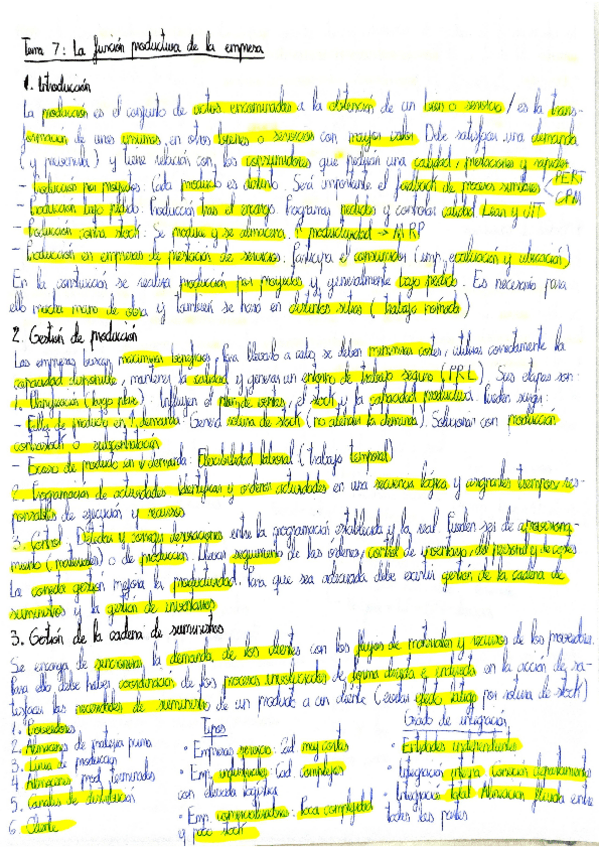 Tema 7: La función productiva de la empresa
1. Introducción
La producción es el conjunto de actos encaminados a la obtención de un bien o servicio / es la trans-
formación de unos insumos en otros bienes o servicios con mayor valor. Debe satisfacer una demanda
(y previsenla) y tiene relación con los consumidores que requieran una calidad, prestaciones y rapidez
- Producción por proyectos: Cada producto es distinto. Será importante el feedback de procesos similares < PERT
CPM
- Producción bajo pedido: Producción tras el encargo. Programar pedidos y controlar calidad Lean y JIT
- Producción contra stock: Se produce y se almacena. ↑ productividad → MRP
- Producción en empresas de prestación de servicios: Participa el consumidor (imp. evaluación y ubicación)
En la construcción se realiza producción por proyectos y generalmente bajo pedido. Es necesario para
ello mucha mano de obra y también se hace en distintos sitios (trabajo nómada)
2. Gestión de producción
Las empresas buscan maximizar beneficios. Para llevarlo a cabo, se deben minimizar costes, utilizar correctamente la
capacidad disponible, mantener la calidad y generar un entorno de trabajo seguro (PRL). Sus etapas son:
1. Planificación (largo plazo). Influyen el plan de ventas, el stock y la capacidad productiva. Pueden surgir:
- Falta de producto en ↑ demanda: Genera rotura de stock (no atender la demanda). Solucionar con producción
contrastock o subcontratación
- Exceso de producto en ↓ demanda: Flexibilidad laboral (trabajo temporal)
2. Programación de actividades. Identificar y ordenar actividades en una secuencia lógica y asignarles tiempos, res-
ponsables de ejecución y recursos
3. Control. Detectar y corregir desviaciones entre la programación establecida y la real. Pueden ser de aprovisiona-
miento (materiales) o de producción. Llevar seguimiento de las ordenes, control de inventario, del personal y de costes
La correcta gestión mejora la productividad. Para que sea adecuada debe existir gestión de la cadena de
suministros y la gestión de inventarios
3. Gestión de la cadena de suministros
Se encarga de sincronizar la demanda de los clientes con los flujos de materiales y recursos de los proveedores.
Para ello debe haber coordinación de los procesos involucrados de forma directa e indirecta en la acción de sa-
tisfacer las necesidades de suministro de un producto a un cliente (evitar efect. látigo por rotura de stock)
1. Proveedores
2. Almacenes de materia prima
3. Línea de producción
4. Almacenes prod. terminados
5. Canales de distribución
6. Cliente
Tipos
• Empresas servicio: Cad. muy cortas
• Emp. industriales: Cad. complejas
con elevada logística
• Emp. comercializadoras: Poca complejidad
y poco stock
Grado de integración
• Entidades independientes
• Integración interna: Conexión departamentos
• Integración total: Alineación fluida entre
todas las partes